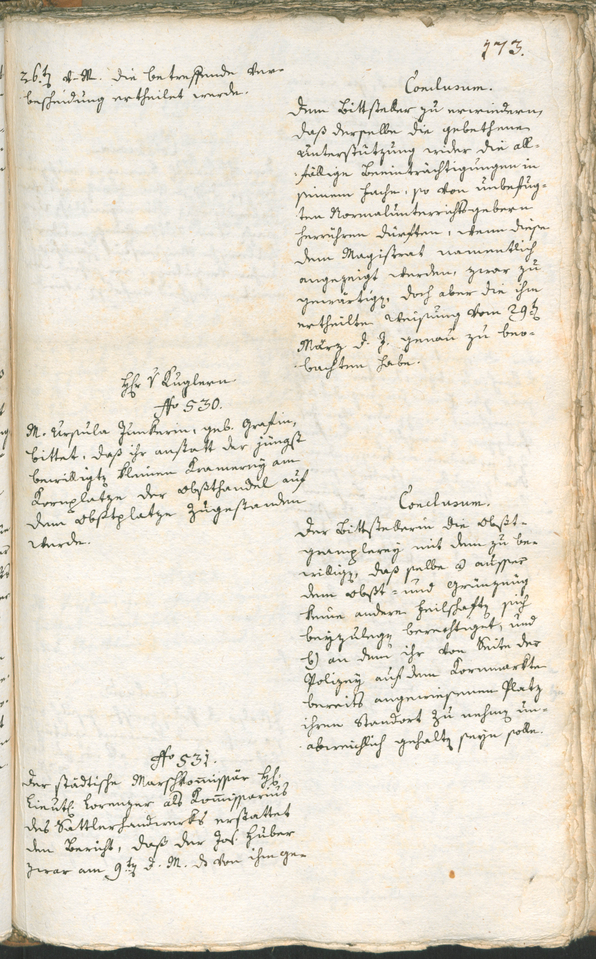 173.
26.ten v. M. die betreffende Ver-
bescheidung ertheilet werde.
Conclusum.
Dem Bittsteller zu erwiedern,
daß derselbe die gebethene
Unterstützung wider die all-
fällige Beeinträchtigungen in
seinem Fache, so von unbefug-
ten Normalunterrichtsgebern
herrühren dürften, wenn diese
dem Magistrat namentlich
angezeigt werden, zwar zu
gewärtigen, doch aber die ihm
ertheilte Weisung vom 29.ten
März d. J. genau zu beo-
bachten habe.
H. v Kuglern
No 530.
M. Ursula Junkerin, geb. Grafin,
bittet, daß ihr anstatt der jüngst
bewilligten kleinen Kramerey am
Kornplatze der Obsthandel auf
dem Obstplatze zugestanden
werde.
Conclusum.
Der Bittstellerin die Obst-
gremplerey mit dem zu be-
willigen, daß selbe a ausser
dem Obst- und Grünzeug
keine andere Feilschaften sich
beyzulegen berechtiget, und
b) an dem ihr von Seite der
Polizey auf dem Kornmarkte
bereits angewiesenen Platz
ihren Standort zu nehmen un-
abweichlich gehalten seyn solle.
No 531.
Der städtische Marschkommissär H.
Lieut. Lorenzer als Kommissarius
des Sattlerhandwerks erstattet
den Bericht, daß der Jos. Huber
zwar am 9.ten d. M. die von ihm ge-